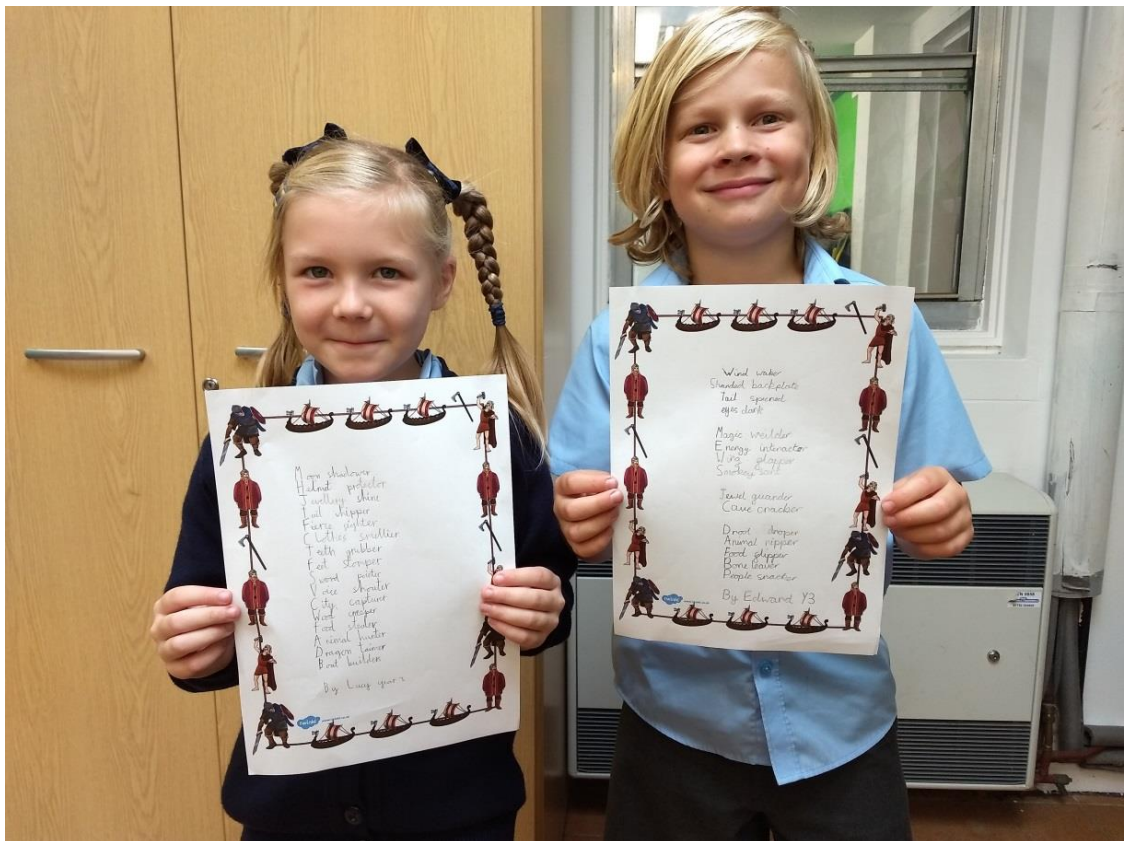 Moon shadower
Helmet protector
Jewellery shine
Tail whipper
Fierce fighter
Clothes smellier
Teeth grubber
Feet stomper
Sword
Voice shouter
City capture
Wood
Food stealer
Animal hunter
Dragon trainer
Boat builder
By Lucy year 2
Wind waker
backplate
Tail spiened
eyes dark
Magic weilder
Energy interactor
Wing flapper
Smokey salt
Jewel guander
Cave cracker
Drool droper
Animal ripper
Food slipper
Bone leaver
People snacker
By Edward Y3